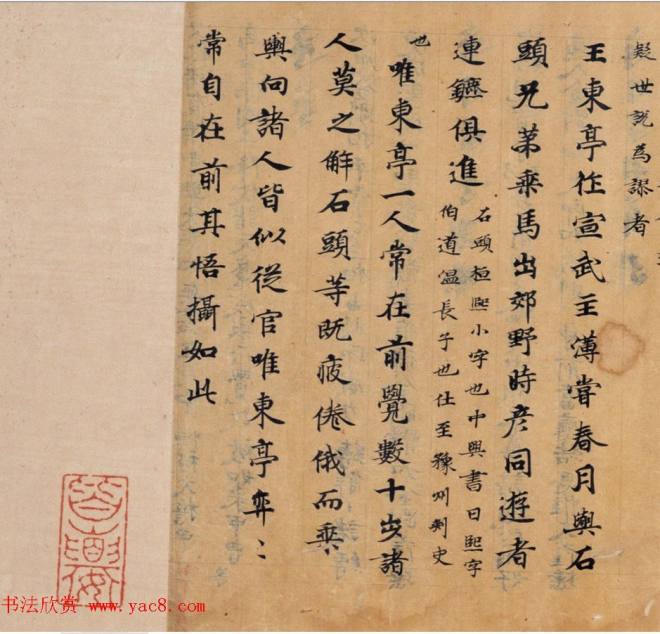 疑世說為謬者
王東亭作宣武主薄嘗春月與石
頭兄苐乗馬出郊野時彦同遊者
連鑣俱進
石頭桓熙小字也中興書曰熙字
伯道温長子也仕至豫州刺史
也
唯東亭一人常在前覺數十步諸
人莫之解石頭等既疲倦俄而乗
輿向諸人皆似從官唯東亭弈〻
常自在前其悟攝如此
书法欣赏 www.yac8.com